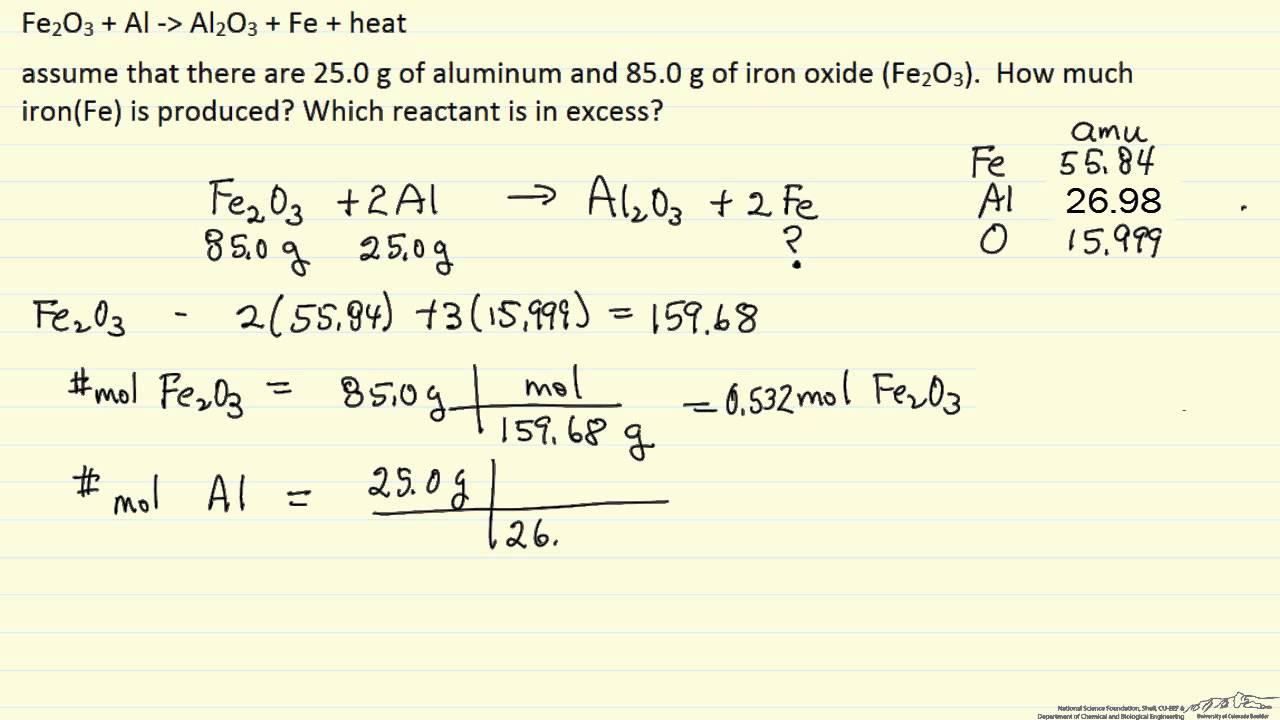 Fe₂O₃ + Al -> Al₂O₃ + Fe + heat
assume that there are 25.0 g of aluminum and 85.0 g of iron oxide (Fe₂O₃).  How much
iron(Fe) is produced? Which reactant is in excess?
amu
Fe 55.84
Al 26.98
O 15.999
Fe₂O₃ + 2Al → Al₂O₃ + 2 Fe
85.0 g 25.0 g ?
Fe₂O₃ - 2(55.84) + 3(15.999) = 159.68
#mol Fe₂O₃ = 85.0 g | mol = 0.532 mol Fe₂O₃
159.68 g
# mol Al = 25.0 g |
26.
National Science Foundation, Shell, CU-EEF &
Department of Chemical and Biological Engineering
University of Colorado Boulder